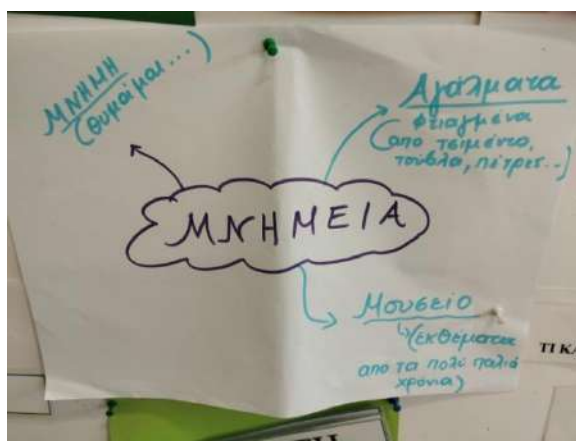 ΜΝΗΜΗ
(θυμάμαι...)
Αγάλματα
φτιαγμένα
(από τσιμέντο,
τούβλα, πέτρες...)
ΜΝΗΜΕΙΑ
Μουσείο
(εκθέματα
από τα πολύ παλιά
χρόνια)
ΤΙ ΚΑ